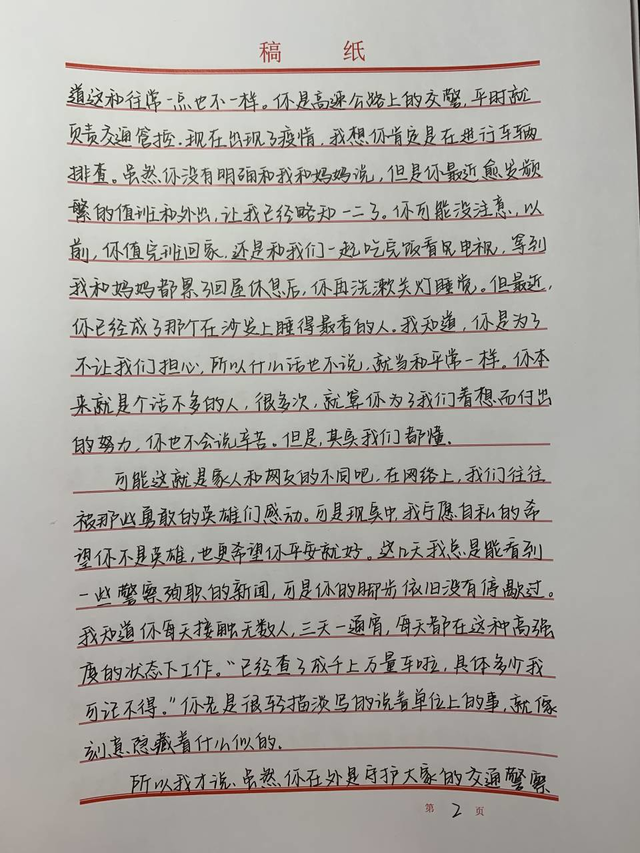 稿 纸
道这和往常一点也不一样。你是高速公路上的交警，平时就
负责交通管控。现在出现了疫情，我想你肯定是在进行车辆
排查。虽然你没有明确和我和妈妈说，但是你最近愈发频
繁的值班和外出，让我已经略知一二了。你可能没注意，以
前，你值完班回家，还是和我们一起吃完饭看完电视，等到
我和妈妈都累了回屋休息后，你再洗漱关灯睡觉。但最近，
你已经成了那个在沙发上睡得最香的人。我知道，你是为了
不让我们担心，所以什么话也不说，就当和平常一样。你本
来就是个话不多的人，很多次，就算你为了我们着想而付出
的努力，你也不会说辛苦。但是，其实我们都懂。
可能这就是家人和网友的不同吧，在网络上，我们往往
被那些勇敢的英雄们感动。可是现实中，我宁愿自私的希
望你不是英雄，也更希望你平安就好。这几天我总是能看到
一些警察殉职的新闻，可是你的脚步依旧没有停歇过。
我知道你每天接触无数人，三天一通宵，每天都在这种高强
度的状态下工作。“已经查了成千上万量车啦，具体多少我
可记不得。”你老是很轻描淡写的说着单位上的事，就像
刻意隐藏着什么似的。
所以我才说，虽然你在外是守护大家的交通警察
第 2 页